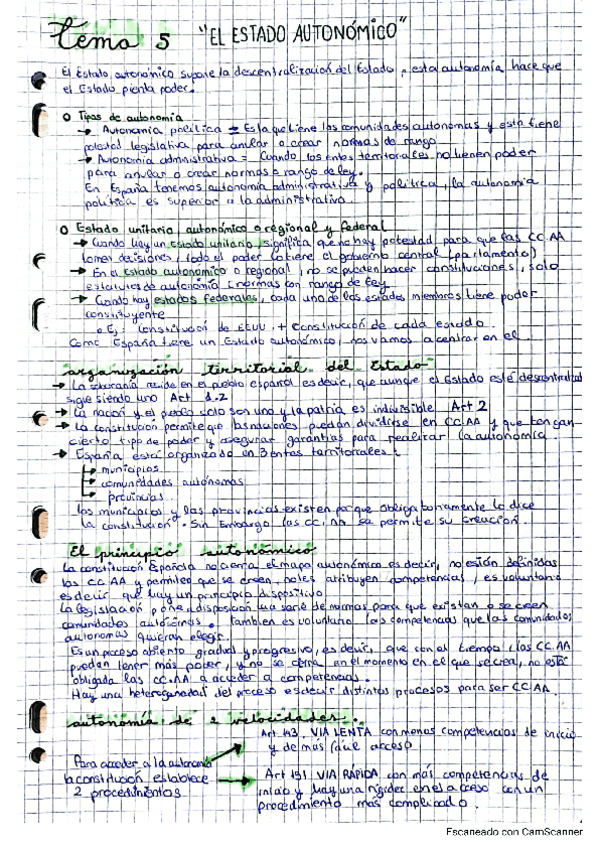 Tema 5 "EL ESTADO AUTONÓMICO"
El Estado autonómico supone la descentralización del Estado, esta autonomía hace que
el Estado pierda poder.
o Tipos de autonomía
→ Autonomía política = Es la que tiene las comunidades autonomas y esta tiene
potestad legislativa para anular o crear normas de rango
→ Autonomía administrativa = Cuando los entes territoriales no tienen poder
para anular o crear normas o rango de ley.
En España tenemos autonomía administrativa y política, la autonomia
política es superior a la administrativa.
o Estado unitario, autonómico o regional y federal
→ Cuando hay un estado unitario significa que no hay potestad para que las CC.AA
tomen decisiones, todo el poder lo tiene el gobierno central (parlamento)
→ En el estado autonómico o regional, no se pueden hacer constituciones, solo
estatutos de autonomía (normas con rango de ley
→ Cuando hay estados federales, cada uno de los estados miembros tiene poder
constituyente
o Ej: Constitución de EEUU + Constitución de cada estado.
Como España tiene un Estado autonómico, nos vamos a centrar en el.
organización territorial del Estado
→ La soberania reside en el pueblo español es decir, que aunque el Estado esté descentralizado
sigue siendo uno Art 1.2
→ La nación y el pueblo solo son uno y la patria es indivisible Art 2
→ La constitución permite que las naciones puedan dividirse en CC.AA y que tengan
cierto tipo de poder y asegurar garantías para realizar la autonomía.
→ España está organizado en 3 entes territoriales:
→ municipios
→ comunidades autónomas
→ provincias
Los municipios y las provincias existen porque obligatoriamente lo dice
la constitución. Sin Embargo las CC.AA se permite su creación.
El principio autonómico
La constitución Española no cierra el mapa autonómico es decir, no están definidas
las CC.AA y permiten que se creen, no les atribuyen competencias, es voluntario
es decir que hay un principio dispositivo
La legislación pone a disposición una serie de normas para que existan o se creen
comunidades autónomas. Tambien es voluntario las competencias que las comunidades
autonomas quieran elegir.
Es un proceso abierto gradual y progresivo, es decir, que con el tiempo las CC.AA
puedan tener más poder, y no se cierra en el momento en el que se crea, no está
obligada las CC.AA a acceder a competencias.
Hay una heterogeneidad del proceso es decir distintos procesos para ser CC.AA.
autonomía de 2 velocidades.
Para acceder a la autonomia
la constitución establece
2 procedimientos
Art 143, VIA LENTA con menos competencias de inicio
y de más fácil acceso
Art 151 VIA RÁPIDA con más competencias de
inicio y hay una rigidez en el acceso con un
procedimiento más complicado.
Escaneado con CamScanner